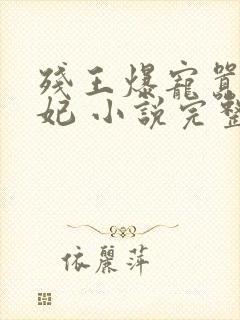 殘王爆寵囂
妃 小說完整
依麗萍